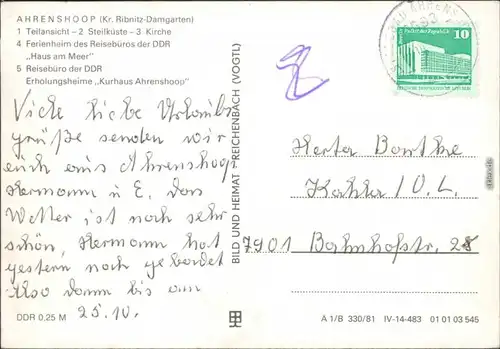 AHRENSHOOP (Kr. Ribnitz-Damgarten)
1 Teilansicht – 2 Steilküste – 3 Kirche
4 Ferienheim des Reisebüros der DDR
„Haus am Meer"
5 Reisebüro der DDR
Erholungsheime „Kurhaus Ahrenshoop"
Viele liebe Urlaubs
grüße senden wir
euch aus Ahrenshoop
Hermann u E. Das
Wetter ist noch sehr
schön, Hermann hat
gestern noch gebadet
Also dann bis am
25.10.
DDR 0,25 M
BILD UND HEIMAT REICHENBACH (VOGTL)
Palast der Republik 10
Herta Banthe
Kahla / O.L.
7901 Bahnhofstr. 28
A 1/B 330/81 IV-14-483 01 01 03 545